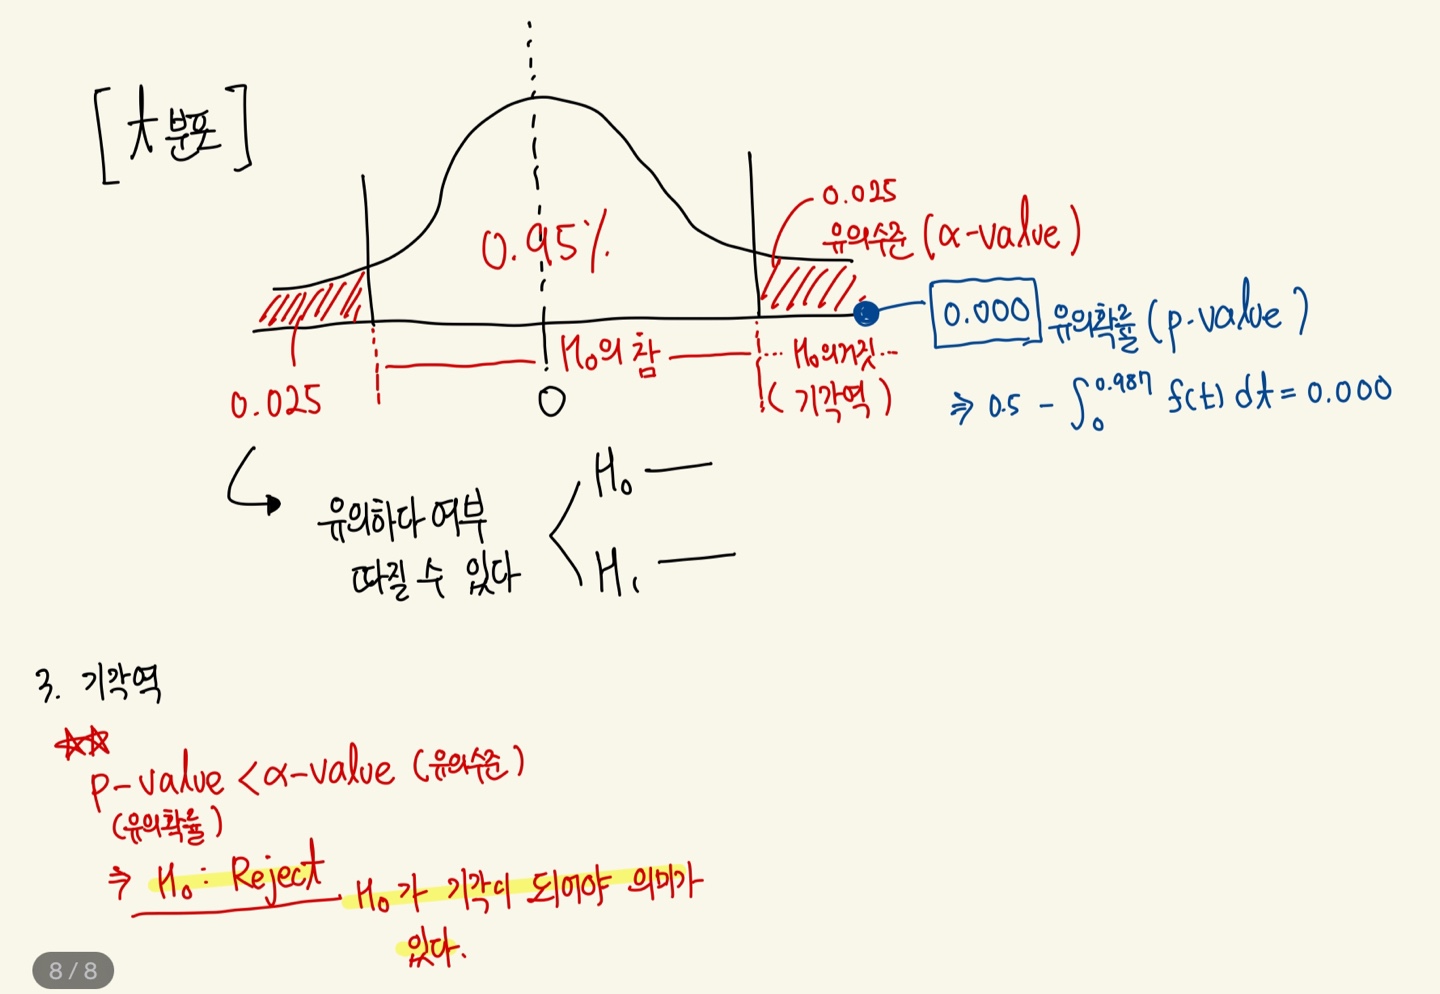 [t분포]
0.95%
0.025
유의수준 (α-value)
0.000 유의확률 (p-value)
⇒ 0.5 - ∫₀^0.987 f(t) dt = 0.000
H₀의 참
H₀의거짓
(기각역)
0.025
0
유의하다 여부
따질 수 있다
H₀ —
H₁ —
3. 기각역
☆☆
p-value < α-value (유의수준)
(유의확률)
⇒ H₀ : Reject
H₀가 기각이 되어야 의미가
있다.
8 / 8